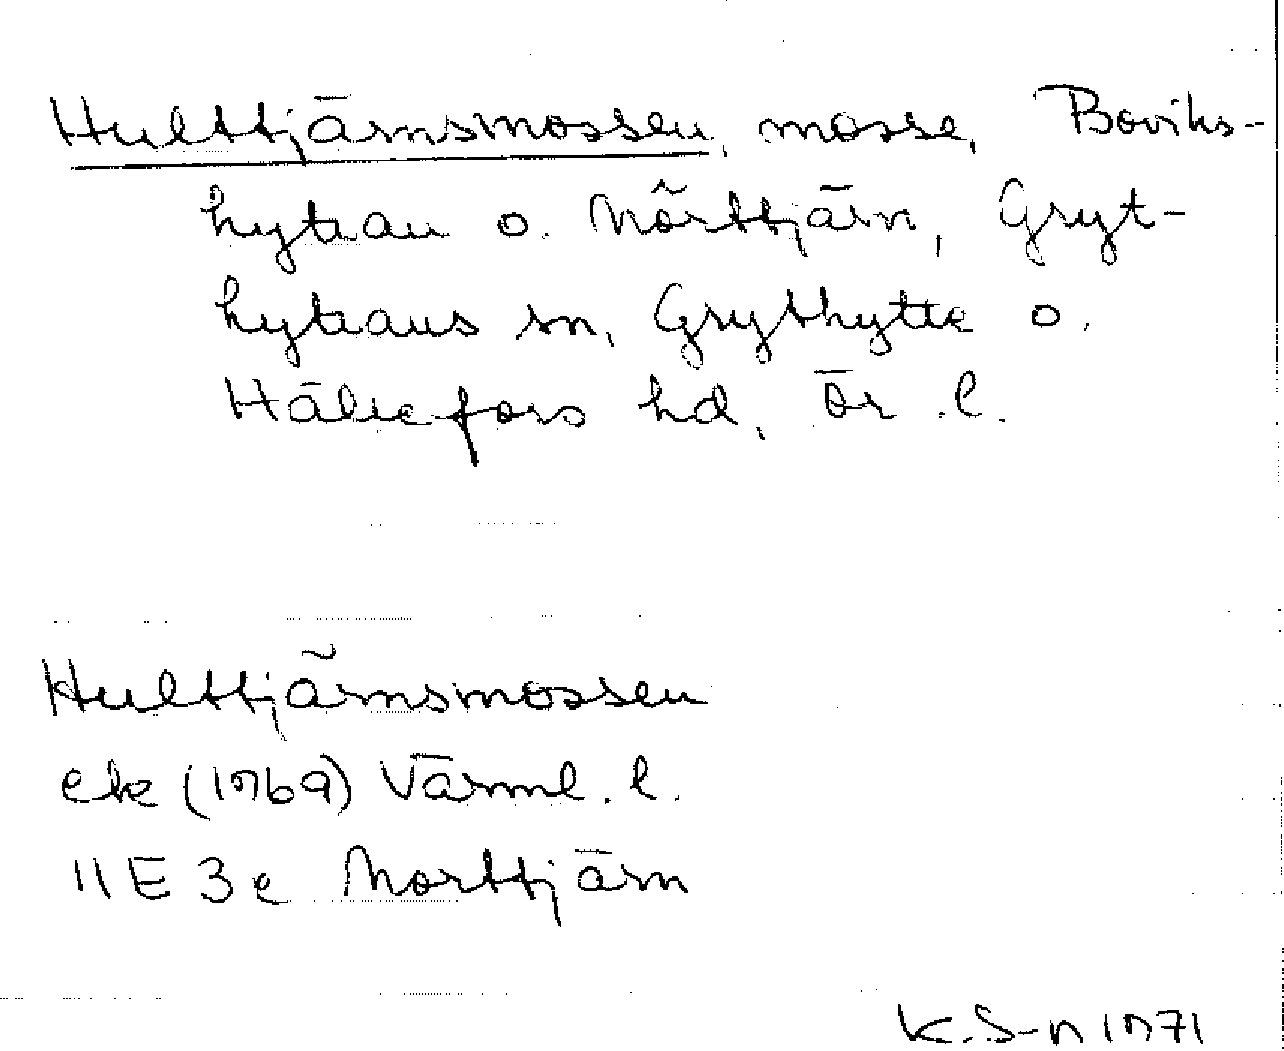 Hulttjärnsmossen, mosse, Boviks-
hyttan o. Mörttjärn, Gryt-
hyttans sn, Grythytte o.
Hällefors hd, Ör. l.
Hulttjärnsmossen
ek (1969) Värml. l.
11E 3e Morttjärn
K.S-n 1971